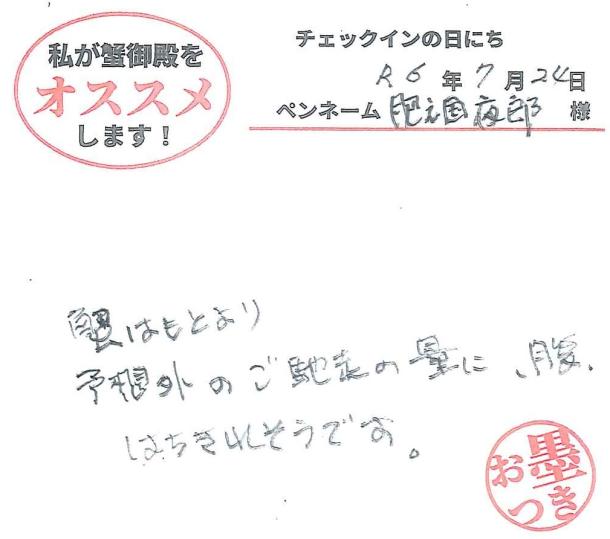 私が蟹御殿を
オススメ
します！
チェックインの日にち
R6年7月24日
ペンネーム 肥之国夜郎 様
蟹はもとより
予想外のご馳走の量に、腹、
はちきれそうです。
お墨
つき